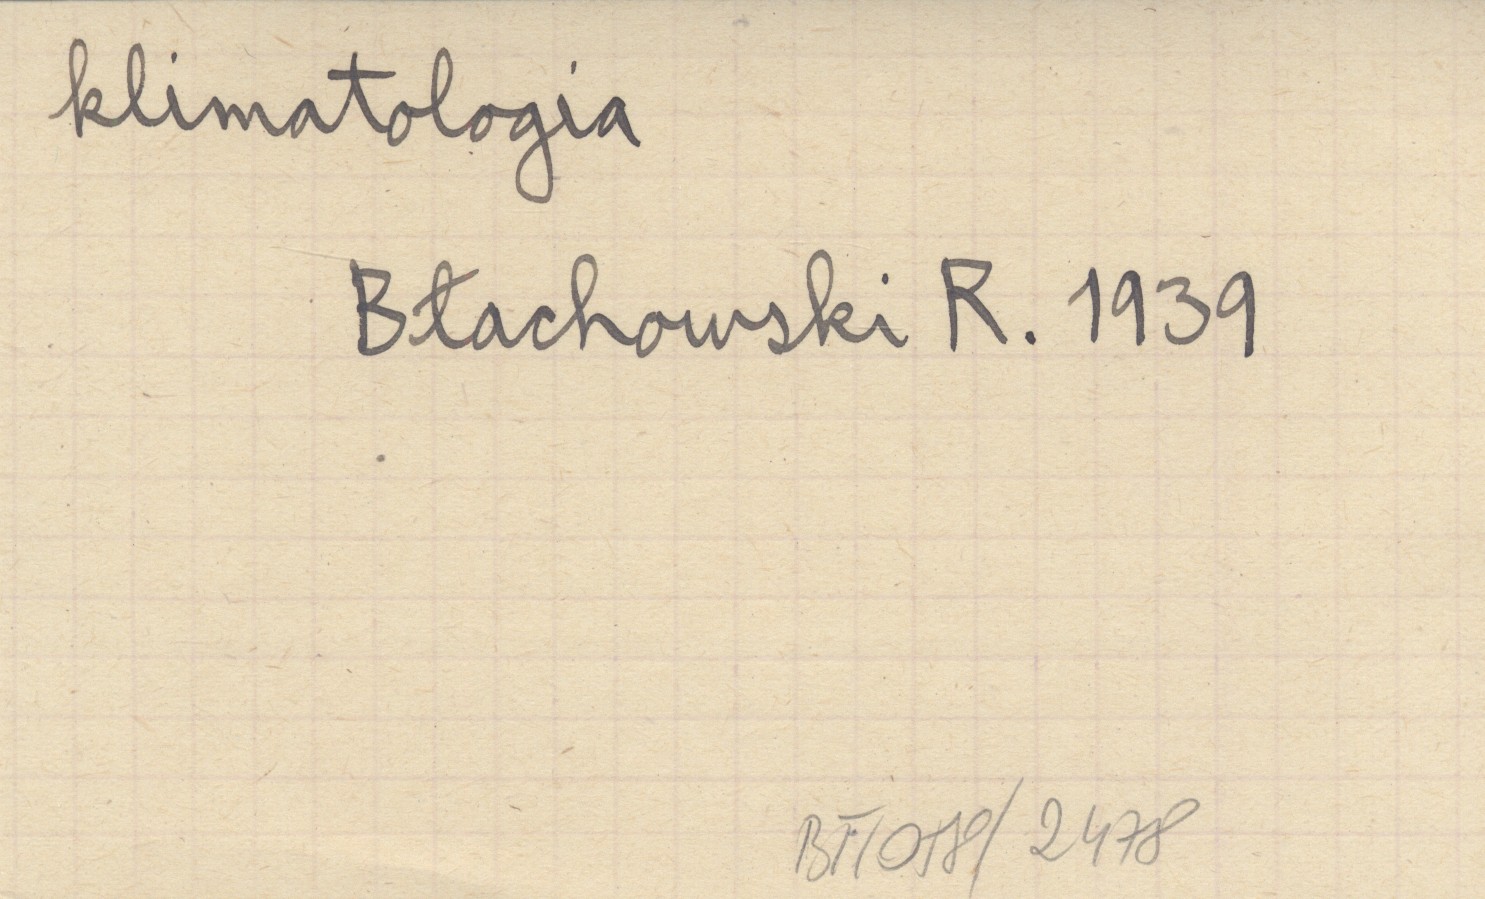 klimatologia
Błachowski R. 1939
BF/078/2478